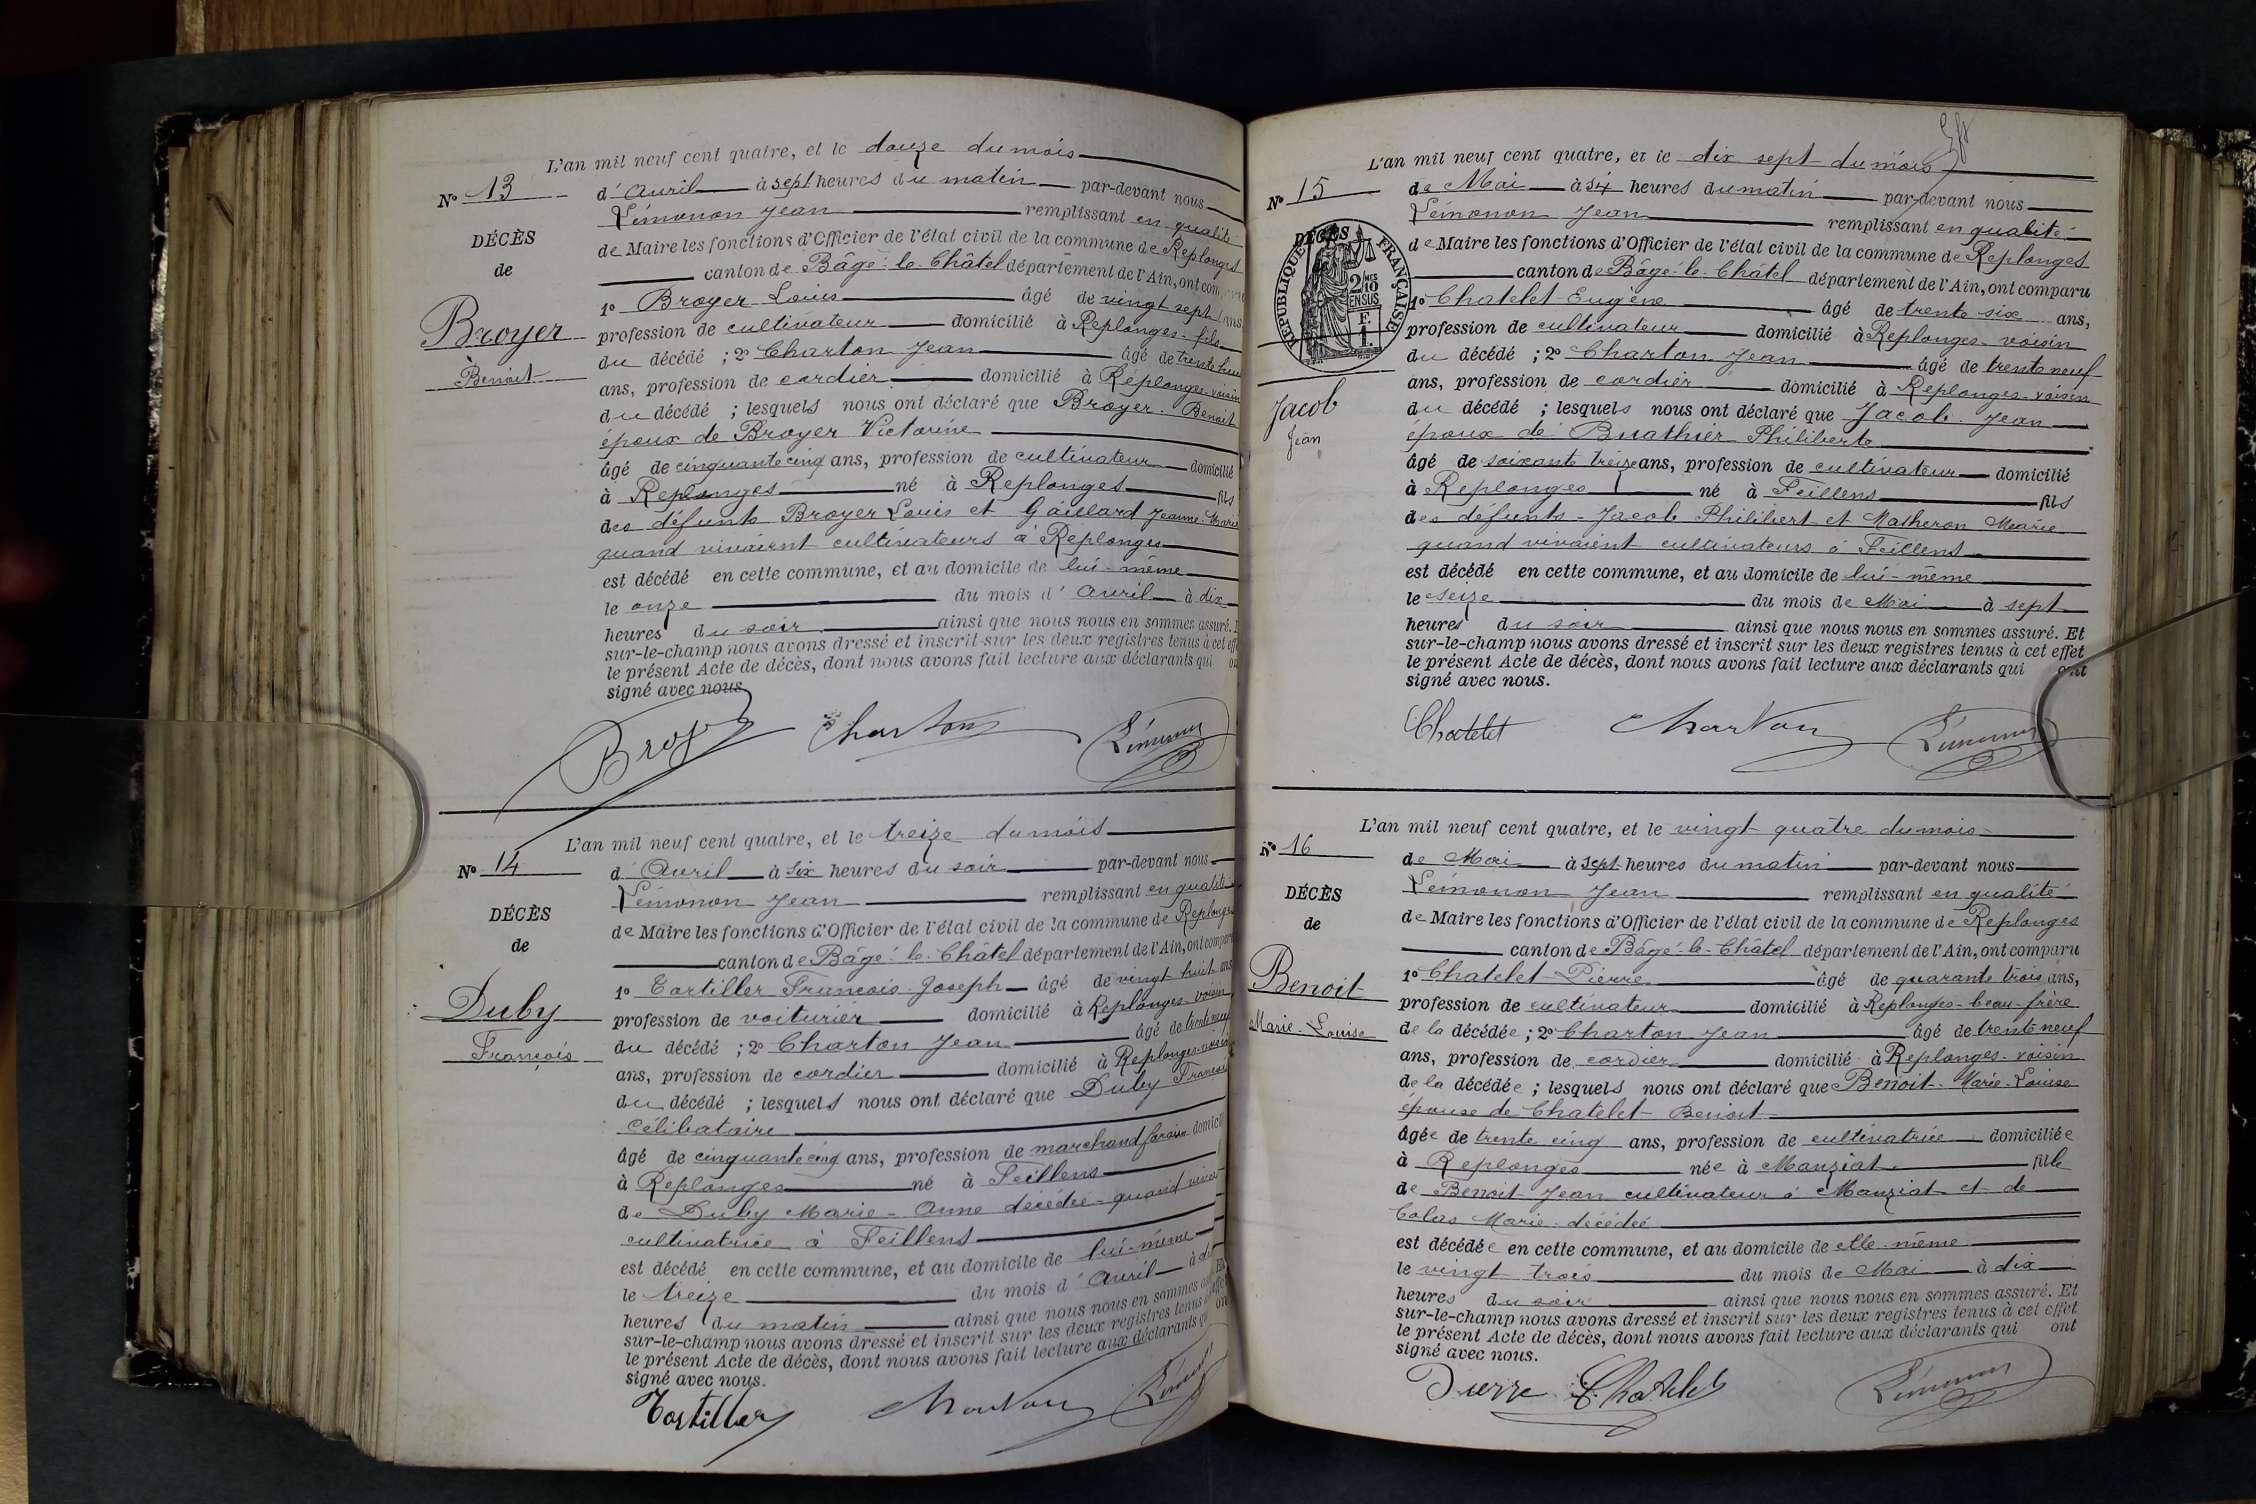 L'an mil neuf cent quatre, et le douze du mois
No 13
d'Avril à sept heures du matin par-devant nous
Lémonon Jean remplissant en qualité
DÉCÈS
de Maire les fonctions d'Officier de l'état civil de la commune de Replonges
de
canton de Bâgé-le-Châtel département de l'Ain, ont
Broyer
1o Broyer Louis âgé de vingt sept ans
profession de cultivateur domicilié à Replonges - fils
Benoit
du décédé ; 2o Charton Jean âgé de trente
ans, profession de cordier domicilié à Replonges - voisin
du décédé ; lesquels nous ont déclaré que Broyer - Benoit
époux de Broyer Victorine
âgé de cinquante cinq ans, profession de cultivateur domicilié
à Replonges né à Replonges fils
des défunts Broyer Louis et Gaillard Jeanne-Marie
quand vivaient cultivateurs à Replonges
est décédé en cette commune, et au domicile de lui-même
le onze du mois d'Avril à dix
heures du soir ainsi que nous nous en sommes assuré.
sur-le-champ nous avons dressé et inscrit sur les deux registres tenus à cet
le présent Acte de décès, dont nous avons fait lecture aux déclarants qui
signé avec nous
Broyer Charton Lémonon
L'an mil neuf cent quatre, et le treize du mois
No 14
d'Avril à six heures du soir par-devant nous
Lémonon Jean remplissant en qualité
DÉCÈS
de Maire les fonctions d'Officier de l'état civil de la commune de Replonges
de
canton de Bâgé-le-Châtel département de l'Ain, ont comparu
Duby
1o Tortiller François-Joseph âgé de vingt huit ans
profession de voiturier domicilié à Replonges - voisin
François
du décédé ; 2o Charton Jean âgé de trente neuf
ans, profession de cordier domicilié à Replonges - voisin
du décédé ; lesquels nous ont déclaré que Duby François
célibataire
âgé de cinquante cinq ans, profession de marchand forain
à Replonges né à Feillens
de Duby Marie-Anne décédée - quand
cultivatrice à Feillens
est décédé en cette commune, et au domicile de lui-même
le treize du mois d'Avril à
heures du matin ainsi que nous nous en sommes
sur-le-champ nous avons dressé et inscrit sur les deux registres tenus
le présent Acte de décès, dont nous avons fait lecture aux déclarants
signé avec nous.
Tortiller Charton Lémonon
L'an mil neuf cent quatre, et le dix sept du mois
No 15
de Mai à six heures du matin par-devant nous
Lémonon Jean remplissant en qualité
DÉCÈS
RÉPUBLIQUE FRANÇAISE
de Maire les fonctions d'Officier de l'état civil de la commune de Replonges
canton de Bâgé-le-Châtel département de l'Ain, ont comparu
1o Chatelet Eugène âgé de trente six ans,
profession de cultivateur domicilié à Replonges - voisin
du décédé ; 2o Charton Jean âgé de trente neuf
ans, profession de cordier domicilié à Replonges - voisin
Jacob
du décédé ; lesquels nous ont déclaré que Jacob Jean
Jean
époux de Buathier Philiberte
âgé de soixante treize ans, profession de cultivateur domicilié
à Replonges né à Feillens fils
des défunts - Jacob Philibert et Matheron Marie
quand vivaient cultivateurs à Feillens
est décédé en cette commune, et au domicile de lui-même
le seize du mois de Mai à sept
heures du soir ainsi que nous nous en sommes assuré. Et
sur-le-champ nous avons dressé et inscrit sur les deux registres tenus à cet effet
le présent Acte de décès, dont nous avons fait lecture aux déclarants qui ont
signé avec nous.
Chatelet Charton Lémonon
L'an mil neuf cent quatre, et le vingt quatre du mois
No 16
de Mai à sept heures du matin par-devant nous
Lémonon Jean remplissant en qualité
DÉCÈS
de Maire les fonctions d'Officier de l'état civil de la commune de Replonges
de
canton de Bâgé-le-Châtel département de l'Ain, ont comparu
Benoit
1o Chatelet Pierre âgé de quarante trois ans,
profession de cultivateur domicilié à Replonges - beau-frère
Marie-Louise
de la décédée ; 2o Charton Jean âgé de trente neuf
ans, profession de cordier domicilié à Replonges - voisin
de la décédée ; lesquels nous ont déclaré que Benoit - Marie-Louise
épouse de Chatelet Benoit
âgée de trente cinq ans, profession de cultivatrice domiciliée
à Replonges née à Manziat fille
de Benoit Jean cultivateur à Manziat et de
Colas Marie - décédée
est décédée en cette commune, et au domicile de elle-même
le vingt trois du mois de Mai à dix
heures du soir ainsi que nous nous en sommes assuré. Et
sur-le-champ nous avons dressé et inscrit sur les deux registres tenus à cet effet
le présent Acte de décès, dont nous avons fait lecture aux déclarants qui ont
signé avec nous.
Pierre Chatelet Lémonon